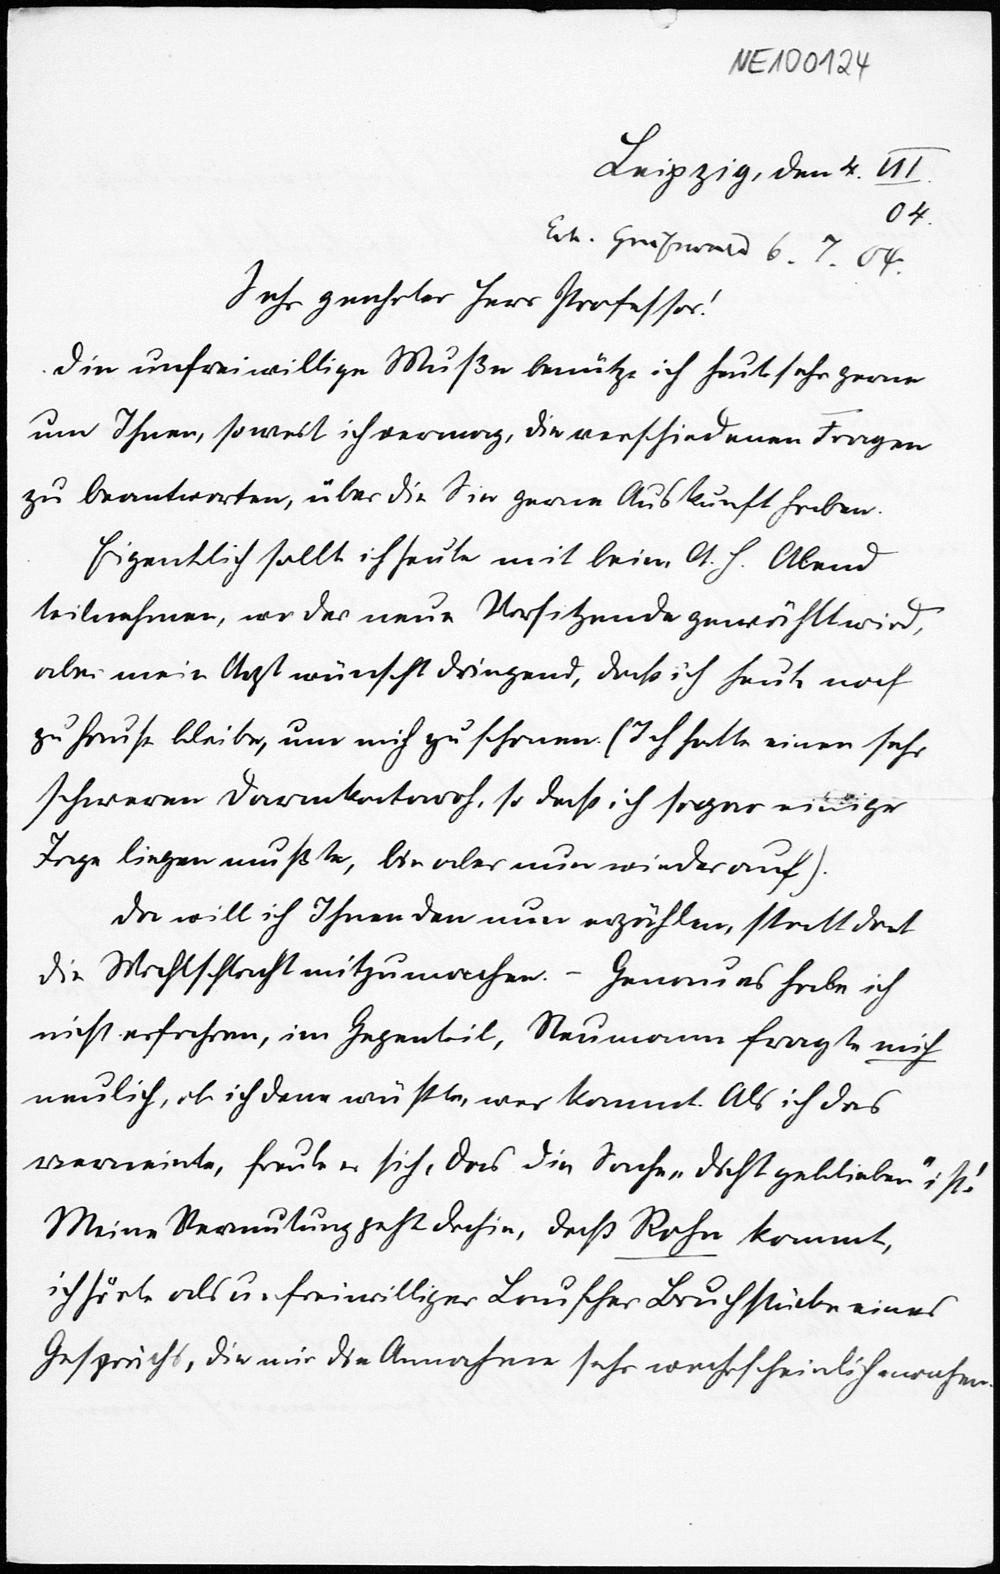 NE100124
Leipzig, den 4. VII.
04.
Erh. Greifswald 6. 7. 04.
Sehr geehrter Herr Professor!
Die unfreiwillige Muße benütze ich heut sehr gerne
um Ihnen, soweit ich vermag, die verschiedenen Fragen
zu beantworten, über die Sie gerne Auskunft haben.
Eigentlich sollt ich heute mit beim A. H. Abend
teilnehmen, wo der neue Vorsitzende gewählt wird,
aber mein Arzt wünscht dringend, daß ich heute noch
zu Hause bleibe, um mich zu schonen. (Ich hatte einen sehr
schweren Darmkatarrh, so daß ich sogar einige
Tage liegen mußte, bin aber nun wieder auf).
Da will ich Ihnen den nun erzählen, statt dort
die Wahlschlacht mitzumachen. – Genaues habe ich
nicht erfahren, im Gegenteil, Neumann fragte mich
neulich, ob ich denn wüßte, wer kommt. Als ich das
verneinte, freute er sich, das die Sache „dicht geblieben" ist!
Meine Vermutung geht dahin, daß Rohn kommt,
ich hörte als unfreiwilliger Lauscher Bruchstücke eines
Gesprächs, die mir die Annahme sehr wahrscheinlich machen.